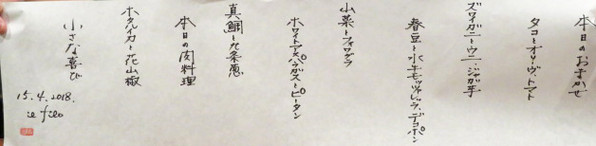 本日のおまかせ
タコとオリーヴ、トマト
ズワイガニとウニ、ジャガ芋
春豆と水牛モッツァレッラ、デコポン
山菜とフォワグラ
ホワイトアスパラガスとピータン
真鯛と九条葱
本日の肉料理
ホタルイカと花山椒
小さな喜び
15.4.2018.